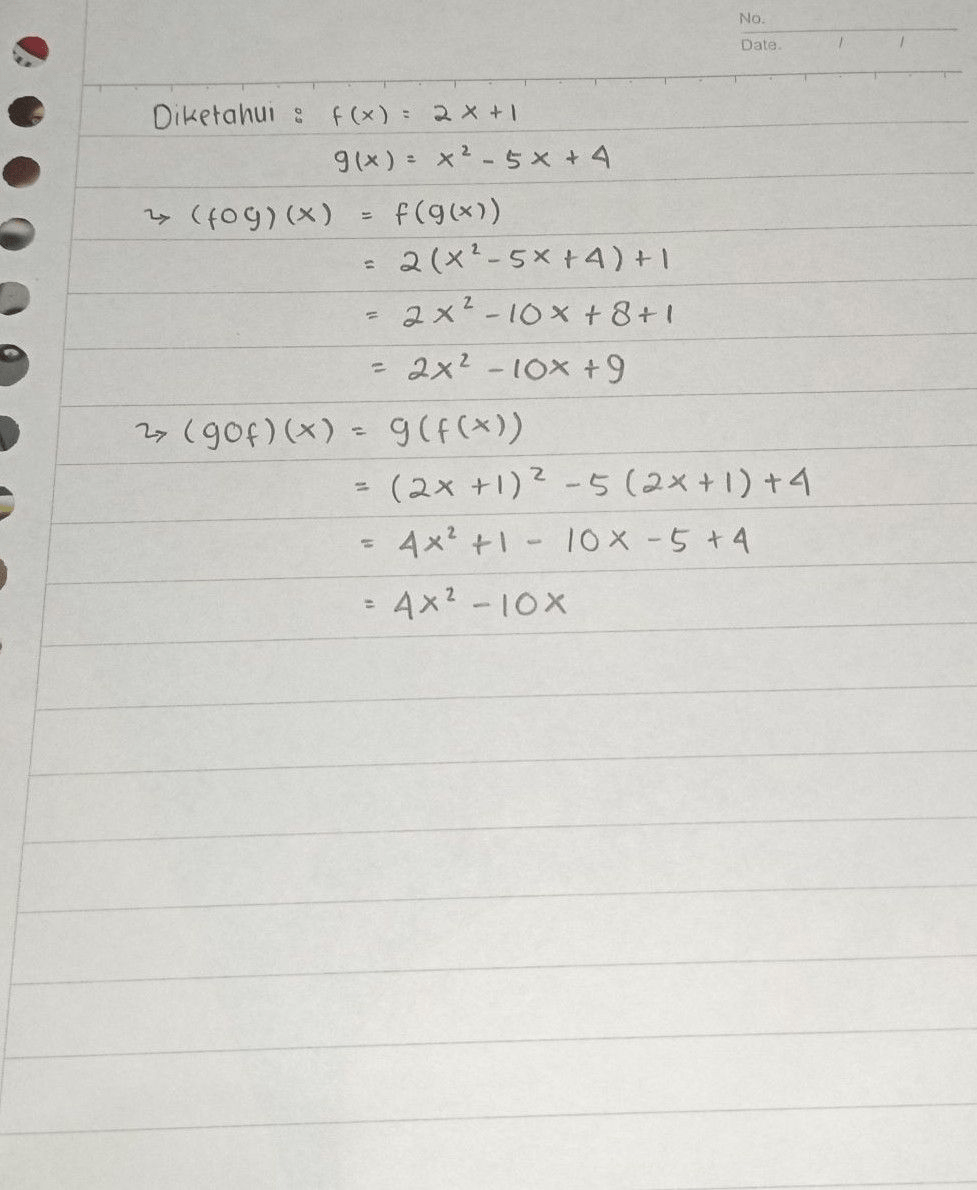 No.
Date. / /
Diketahui : f(x) = 2x + 1
g(x) = x² - 5x + 4
↝ (fog)(x) = f(g(x))
= 2(x² - 5x + 4) + 1
= 2x² - 10x + 8 + 1
= 2x² - 10x + 9
↝ (gof)(x) = g(f(x))
= (2x + 1)² - 5(2x + 1) + 4
= 4x² + 1 - 10x - 5 + 4
= 4x² - 10x